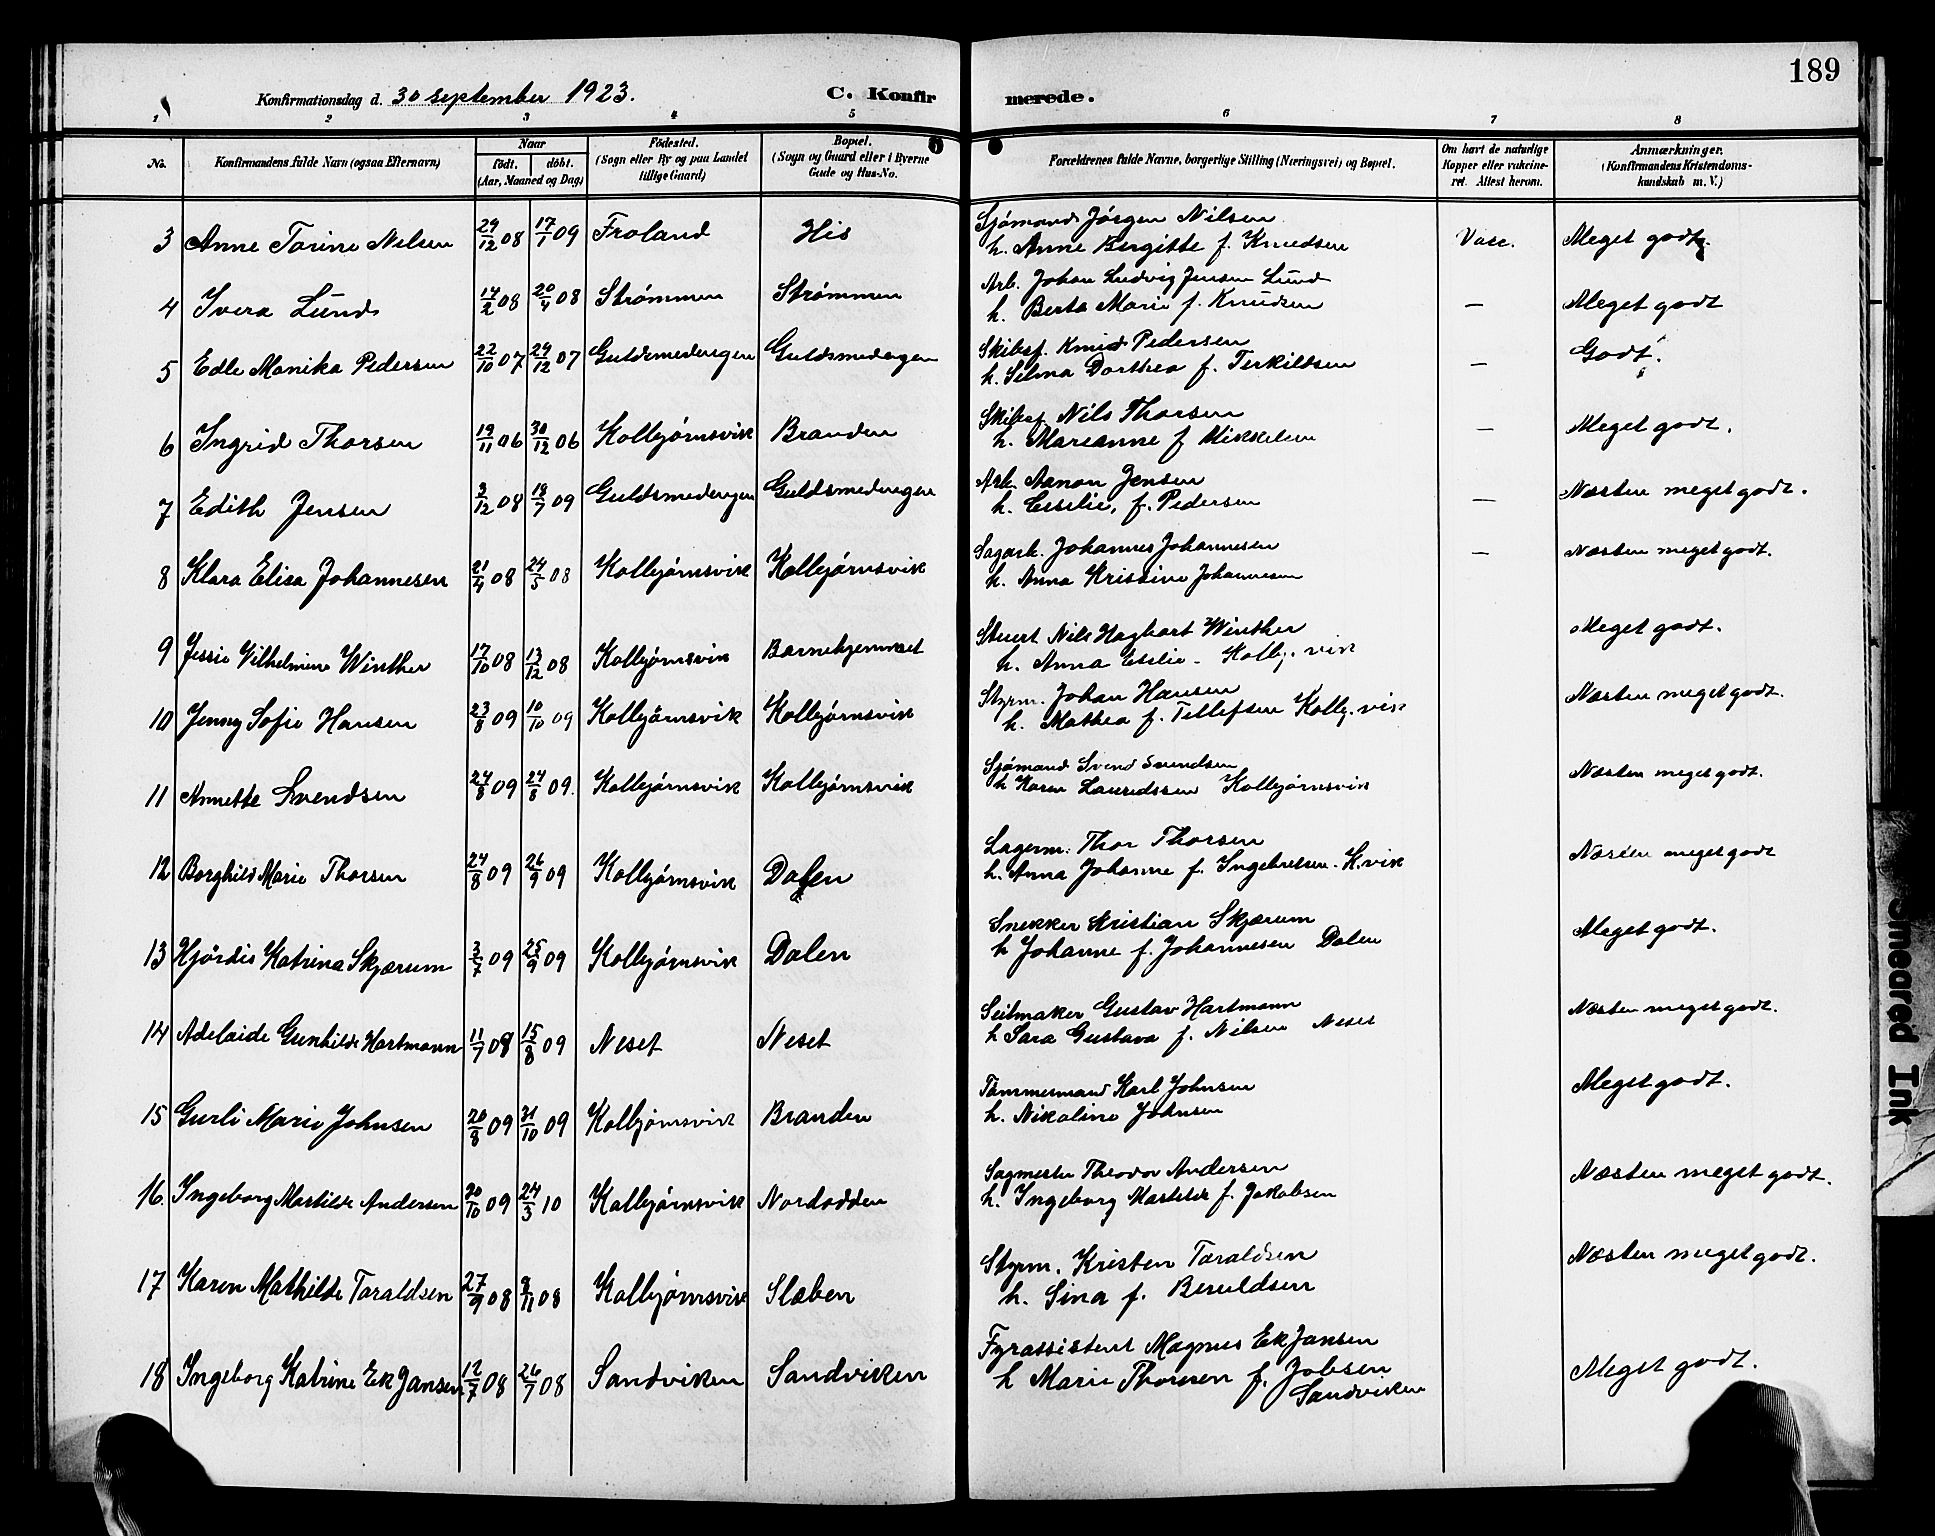 189
Konfirmationsdag d. 30 september 1923. C. Konfirmerede.
1 2 3 4 5 6 7 8
No. Konfirmandens fulde Navn (ogsaa Efternavn) Naar født. døbt. (Aar, Maaned og Dag) Fødested. (Sogn eller By og paa Landet tillige Gaard) Bopæl. (Sogn og Gaard eller i Byerne Gade og Hus-No. Forældrenes fulde Navne, borgerlige Stilling (Næringsvei) og Bopæl. Om havt de naturlige Kopper eller vakcineret. Attest herom. Anmærkninger. (Konfirmandens Kristendomskundskab m. V.)
3 Anne Torine Nilsen 29/12 08 17/1 09 Froland His Sjömand Jörgen Nilsen Vacc. Meget godt.
h. Anne Birgitte f. Knudsen
4 Ivera Lund 14/2 08 20/4 08 Strømmen Strømmen Arb. Johan Ludvig Jensen Lund — Meget godt
h. Berta Marie f. Knudsen
5 Edle Monika Pedersen 22/10 07 29/12 07 Guldsmedengen Guldsmedengen Skibsf. Knud Pedersen — Godt.
h. Selma Dorthea f. Terkildsen
6 Ingrid Thorsen 19/11 06 30/12 06 Kolbjørnsvik Branden Skibsf Nils Thorsen — Meget godt.
h. Marianne f Mikkelsen
7 Edith Jensen 3/12 08 18/7 09 Guldsmedengen Guldsmedengen Arb. Aanon Jensen — Næsten meget godt.
h. Cesilie, f. Pedersen
8 Klara Elisa Johannesen 21/4 08 24/5 08 Kolbjørnsvik Kolbjørnsvik Sagarb. Johannes Johannesen — Næsten meget godt.
h. Anna Kristine Johannesen
9 Jessie Vilhelmine Winther 17/10 08 13/12 08 Kolbjørnsvik Barnehjemmet Stuert Nils Hagbart Winther Meget godt.
h. Anna Cesilie - Kolbj.vik
10 Jenny Sofie Hansen 23/8 09 10/10 09 Kolbjørnsvik Kolbjørnsvik Styrm. Johan Hansen Næsten meget godt.
h. Mathea f. Tellefsen Kolbj.vik
11 Annette Svendsen 24/8 09 24/8 09. Kolbjørnsvik Kolbjørnsvik Sjömand Svend Svendsen Næsten meget godt.
h Karen Lauridssen Kolbjørnsvik
12 Borghild Marie Thorsen 24/8 09 26/9 09 Kolbjørnsvik Dalen Lagerm. Thor Thorsen Næsten meget godt
h. Anna Johanne f. Ingebretsen. K.vik
13 Hjördis Katrina Skjærum 3/7 09 25/9 09 Kolbjørnsvik Dalen Snekker Kristian Skjærum Meget godt.
h Johanne f. Johannesen Dalen
14 Adelaide Gunhilde Hartmann 11/7 08 15/8 09 Neset Neset Seilmaker Gustav Hartmann Næsten meget godt.
h Sara Gustava f. Nilsen Neset
15 Gurli Marie Johnsen 20/8 09 31/10 09 Kolbjørnsvik Branden Tömmermand Karl Johnsen Meget godt.
h. Nikoline Johnsen
16. Ingeborg Matilde Andersen 20/10 09 24/3 10 Kolbjørnsvik Nordodden Sagmester Theodor Andersen Næsten meget godt.
h. Ingeborg Matilde f. Jakobsen
17 Karen Mathilde Taraldsen 27/9 08 8/11 08 Kolbjørnsvik Slæben Styrm. Kristen Taraldsen Næsten meget godt.
h. Sina f. Beruldsen
18 Ingeborg Katrine Ek Jansen 12/7 08 26/7 08 Sandviken Sandviken Fyrassistent Magnus Ek Jansen Meget godt.
h Marie Thorsen f. Jobsen
Sandviken
Smeared Ink